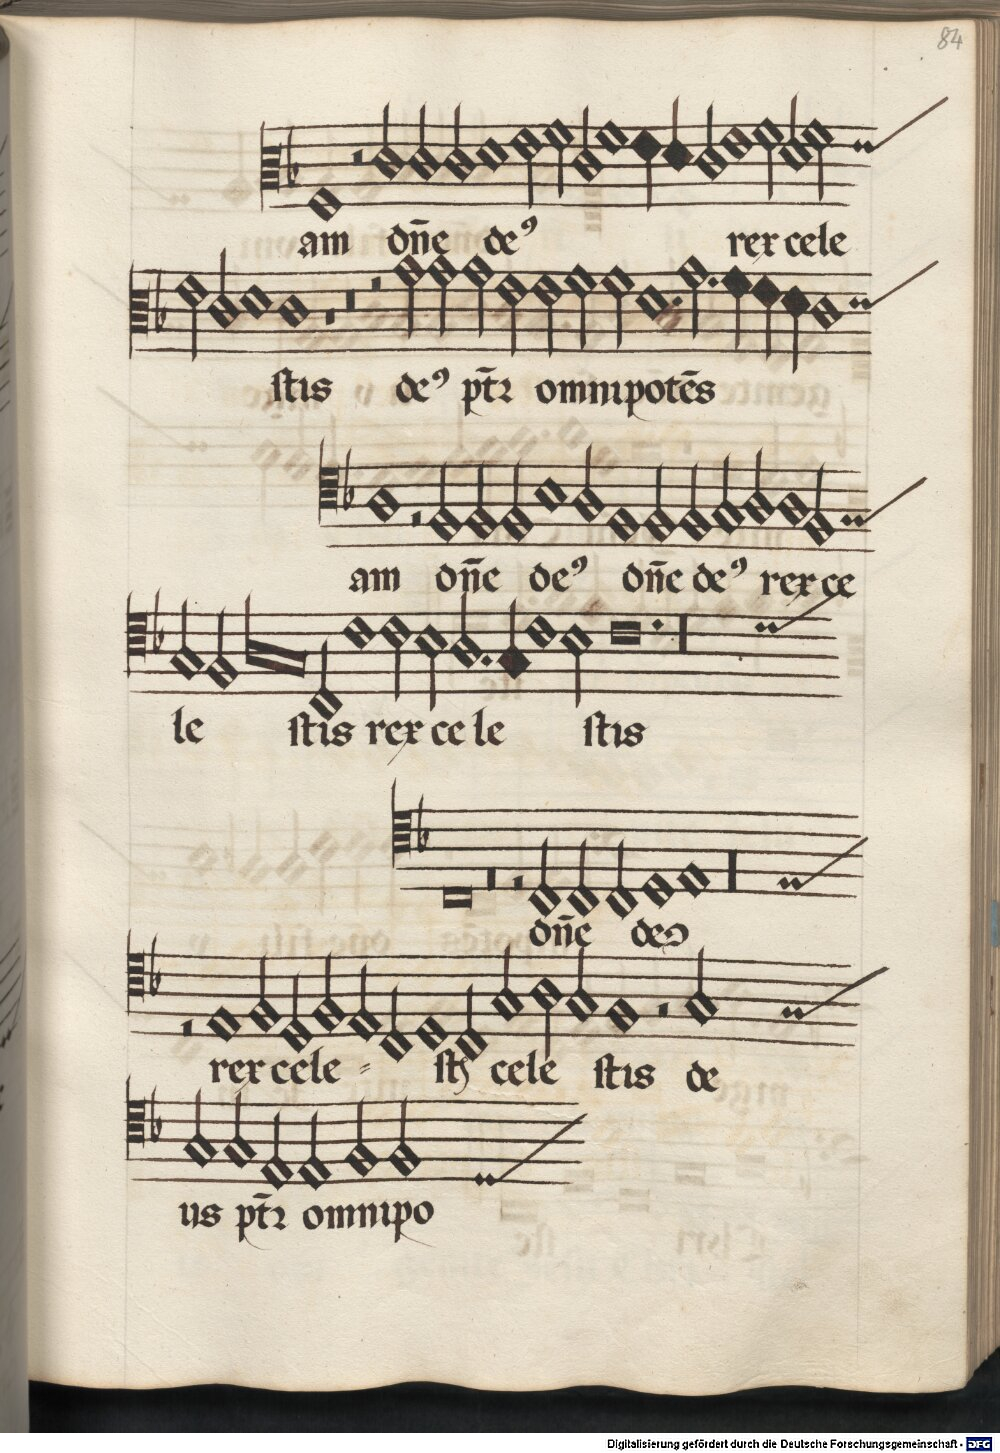 84
am dn̄e deꝰ rex cele
stis deꝰ pt̄r omnipotēs
am dn̄e deꝰ dn̄e deꝰ rex ce
le stis rex ce le stis
dn̄e deꝰ
rex cele - cele stis de
us pt̄r omnipo
Digitalisierung gefördert durch die Deutsche Forschungsgemeinschaft - DFG